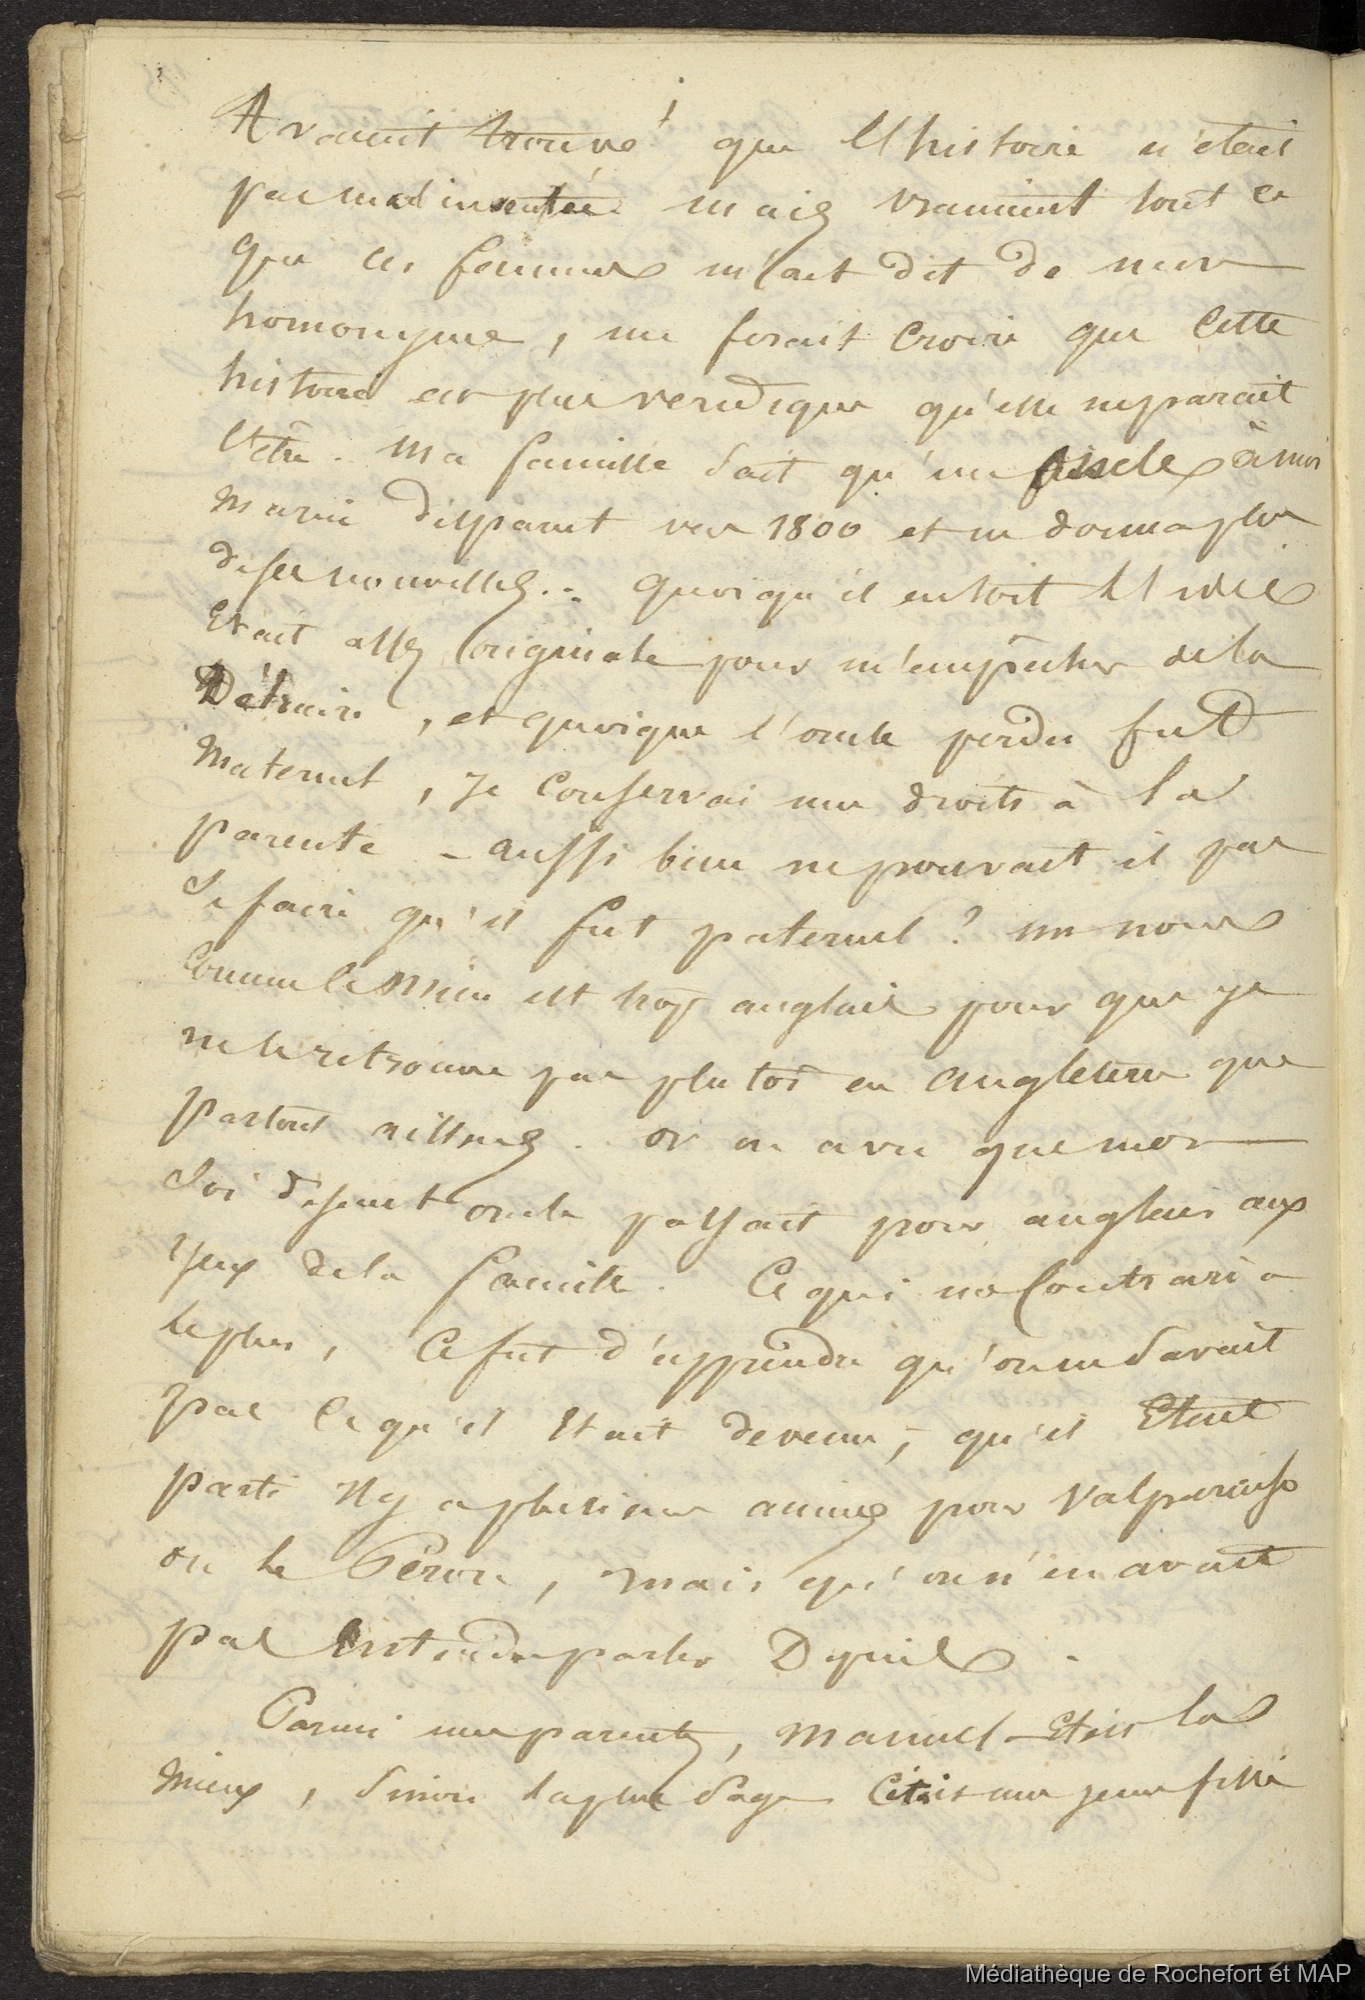 Avaient trouvé que l'histoire n'était
pas mal inventée mais vraiment tout ce
que ces femmes m'ont dit de mon
homonyme, me ferait croire que cette
histoire est plus veridique qu'elle ne parait
l'être. Ma famille sait qu'un oncle à moi
marin disparut vers 1800 et ne donna plus
de ses nouvelles... quoiqu'il en soit l'idée
Etait assez originale pour m'empêcher de la
Détruire, et quoique l'oncle perdu fut
Maternel, je conservai mes droits à la
parenté - aussi bien ne pouvait il pas
se faire qu'il fut paternel? un nom
Comme le mien est trop anglais pour que je
ne le retrouve pas plutot en angleterre que
partout ailleurs. or on a vu que mon
soi disant oncle passait pour anglais aux
yeux de la famille. Ce qui me contraria
le plus, ce fut d'apprendre qu'on ne savait
pas ce qu'il Etait devenu, qu'il Etait
parti il y a plusieurs années pour Valparaiso
ou le Pérou, mais qu'on n'en avait
pas Entendu parler Depuis.
Parmi mes parentes, manuel Etait la
mieux, sinon la plus sage C'était une jeune fille
Médiathèque de Rochefort et MAP